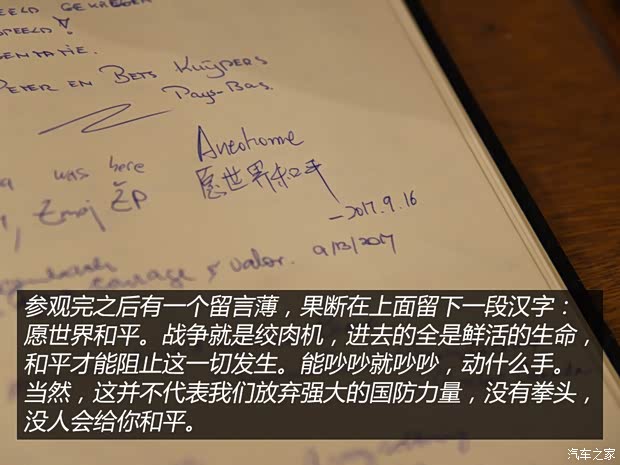 PETER EN BETS KUIJPERS
PAYS-BAS.
was here
ŽP
Autohome
愿世界和平
-2017.9.16
& valor. 9/13/2017
参观完之后有一个留言薄，果断在上面留下一段汉字：
愿世界和平。战争就是绞肉机，进去的全是鲜活的生命，
和平才能阻止这一切发生。能吵吵就吵吵，动什么手。
当然，这并不代表我们放弃强大的国防力量，没有拳头，
没人会给你和平。
汽车之家